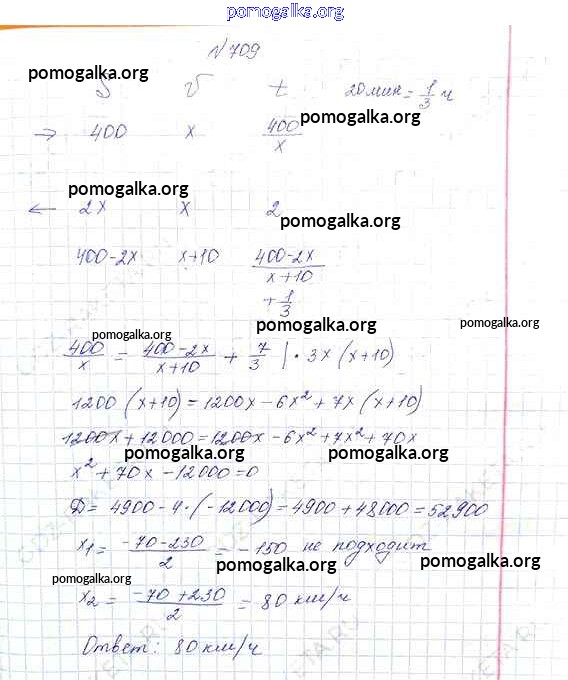 pomogalka.org
№709
pomogalka.org
S v t 20мин = 1/3 ч
pomogalka.org
→ 400 x 400/x
pomogalka.org
← 2x x 2
pomogalka.org
400-2x x+10 (400-2x)/(x+10)
+ 1/3
pomogalka.org
pomogalka.org
pomogalka.org
400/x = (400-2x)/(x+10) + 7/3 | · 3x (x+10)
1200 (x+10) = 1200x - 6x² + 7x (x+10)
1200x + 12000 = 1200x - 6x² + 7x² + 70x
pomogalka.org pomogalka.org
x² + 70x - 12000 = 0
D = 4900 - 4 · (-12000) = 4900 + 48000 = 52900
x₁ = (-70-230)/2 = -150 не подходит
pomogalka.org pomogalka.org pomogalka.org
x₂ = (-70+230)/2 = 80 км/ч
pomogalka.org
Ответ: 80 км/ч